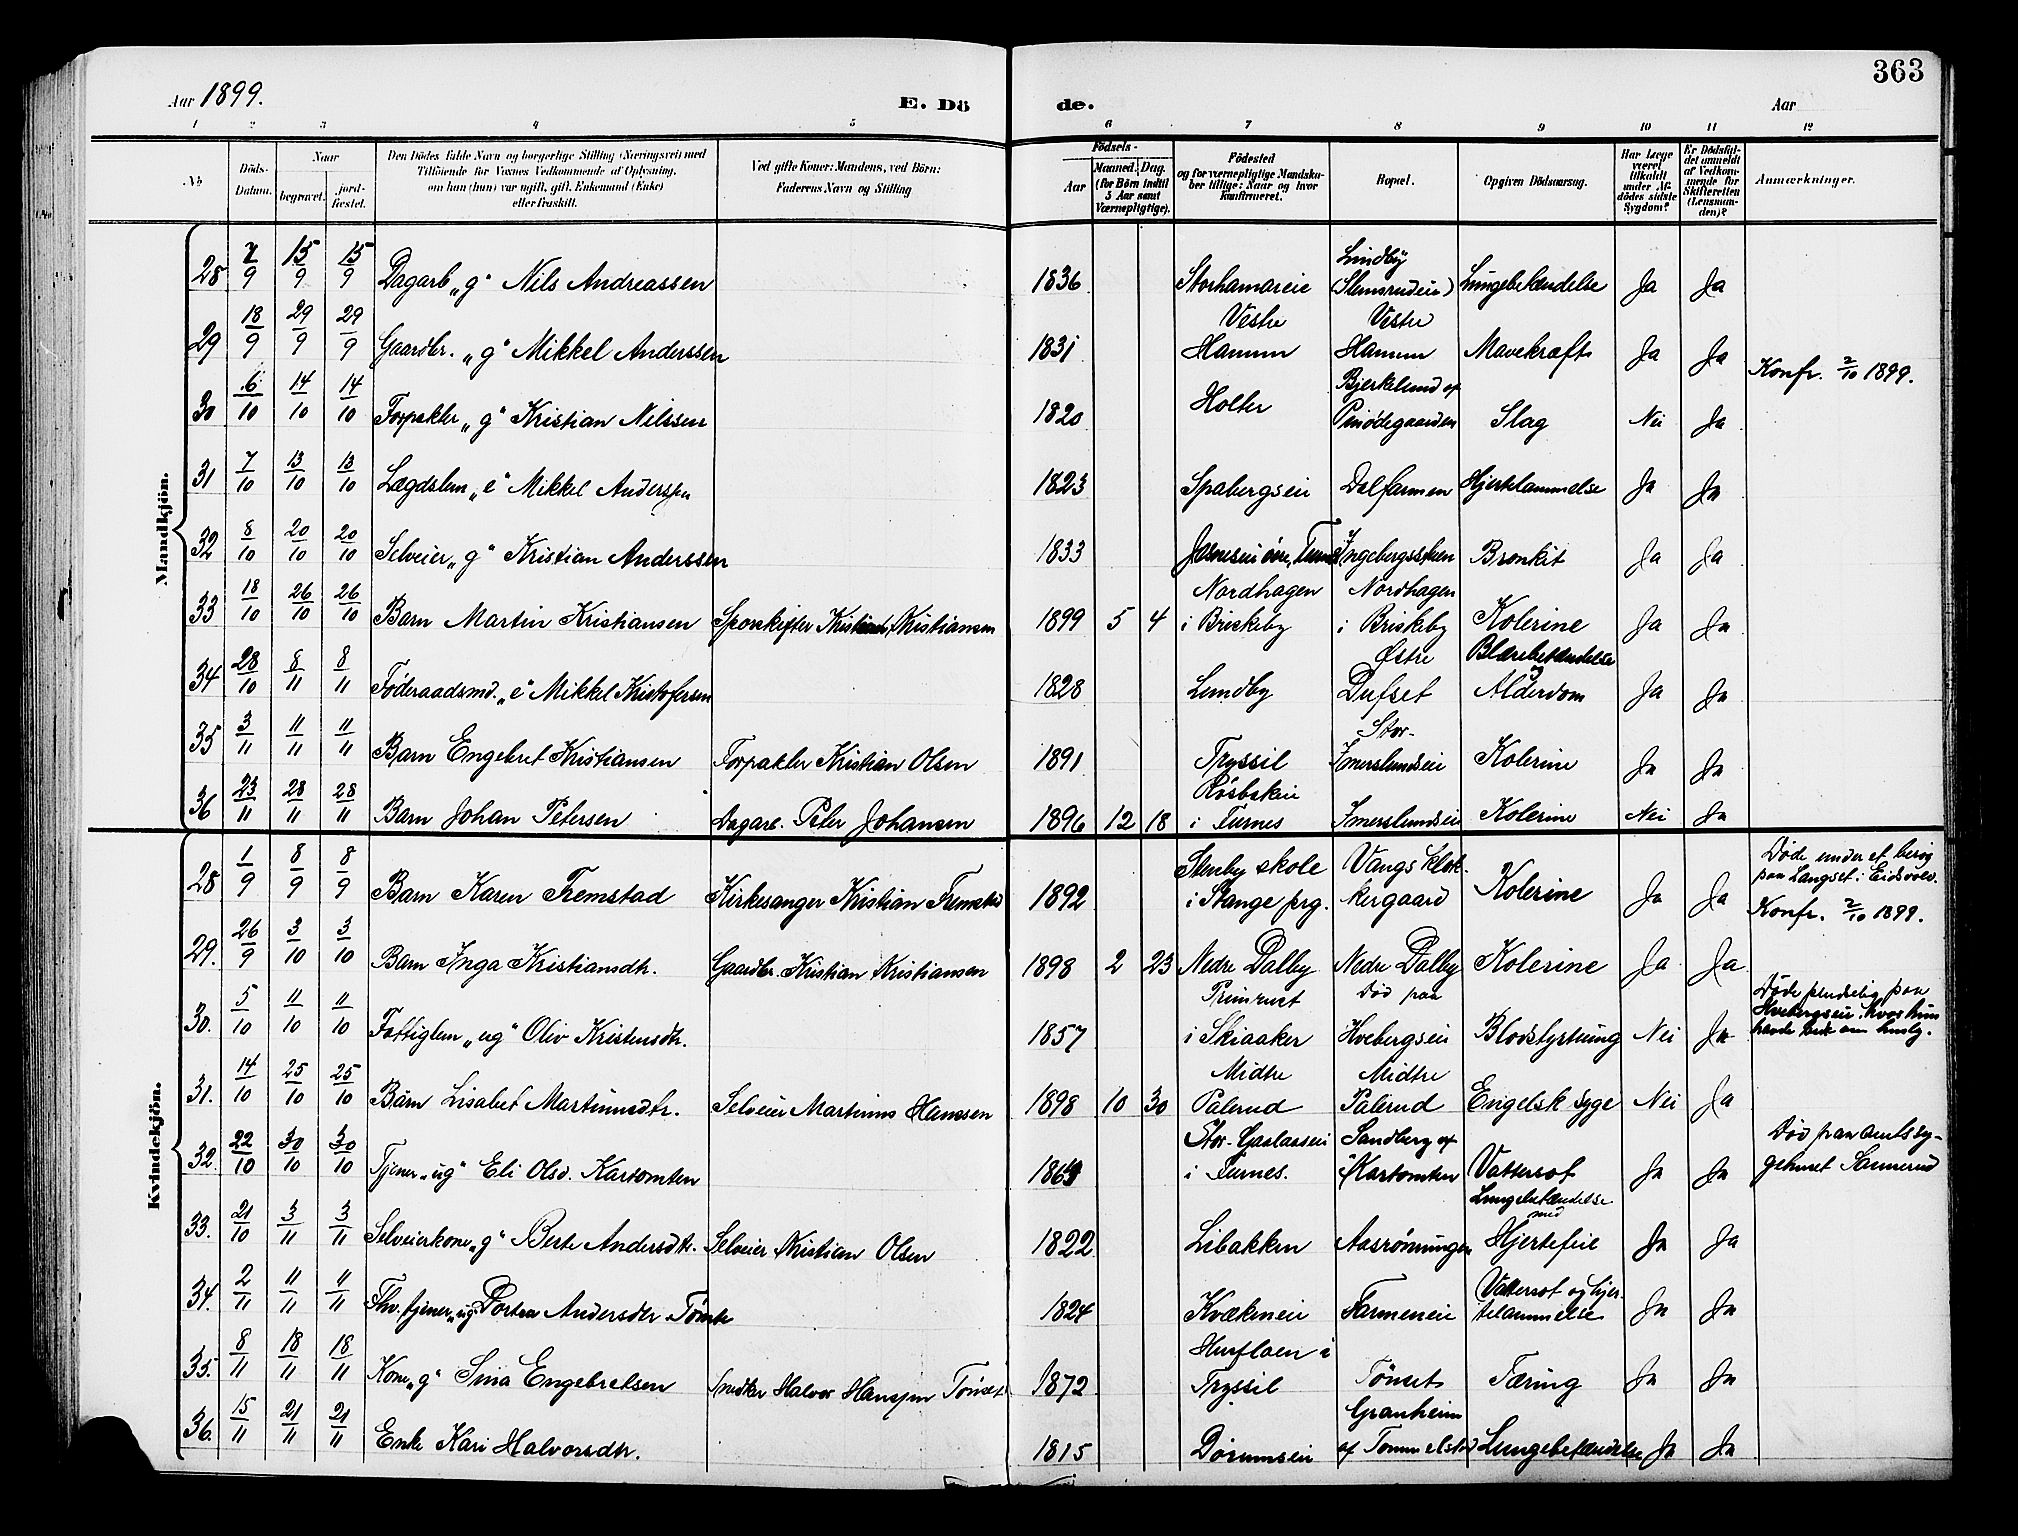 363
Aar 1899. E. Dö de. Aar
1 2 3 4 5 6 7 8 9 10 11 12
No
Döds-Datum.
Naar begravet. jordfæstet.
Den Dödes fulde Navn og borgerlige Stilling (Næringsvei) med
Tilföiende for Voxnes Vedkommende af Oplysning,
om han (hun) var ugift, gift, Enkemand (Enke)
eller fraskilt.
Ved gifte Koner: Mandens, ved Börn:
Faderens Navn og Stilling
Födsels-
Aar Maaned. Dag.
(for Börn indtil
5 Aar samt
Værnepligtige).
Födested
og for værnepligtige Mandskaber tillige: Naar og hvor
Konfirmeret.
Bopæl.
Opgiven Dödsaarsag.
Har Læge været tilkaldt under Afdödes sidste Sygdom?
Er Dödsfaldet anmeldt af Vedkommende for Skifteretten (Lensmanden)?
Anmærkninger.
Mandkjön.
28 7/9 15/9 15/9 Dagarb „g“ Nils Andreassen 1836 Storhamareie Lindby (Slemsrudeie) Lungebetændelse Ja Ja
29 18/9 29/9 29/9 Gaardbr. „g“ Mikkel Anderssen 1831 Vestre Hamum Vestre Hamum Mavekræft Ja Ja
30 6/10 14/10 14/10 Forpakter „g“ Kristian Nilssen 1820 Holter Bjerkelund af Slag Nei Ja Konfr. 2/10 1899.
31 7/10 13/10 13/10 Lægdslem „e“ Mikkel Anderssen 1823 Spabergseie Dalfarmen Hjertelammelse Ja Ja
32 8/10 20/10 20/10 Selveier „g“ Kristian Anderssen 1833 Ingebergsseteren Bronkit Ja Ja
33 18/10 26/10 26/10 Barn Martin Kristiansen Sporskifter Kristian Kristiansen 1899 5 4 Nordhagen i Briskeby Nordhagen i Briskeby Kolerine Ja Ja
34 28/10 8/11 8/11 Föderaadsmd. „e“ Mikkel Kristofersen 1828 Lundby Østre Dufset Blærebetændelse Alderdom Ja Ja
35 3/11 11/11 11/11 Barn Engebret Kristiansen Forpakter Kristian Olsen 1891 Tryssil Stor-Imerslundseie Kolerine Ja Ja
36 23/11 28/11 28/11 Barn Johan Petersen Dagarb. Peter Johansen 1896 12 18 Røsbakeie i Furnes Imerslundseie Kolerine Nei Ja
Kvindekjön.
28 1/9 8/9 8/9 Barn Karen Fremstad Kirkesanger Kristian Fremstad 1892 Steneby skole i Stange prg. Vangs klokkergaard Kolerine Ja Ja Døde under et besøg paa Langset i Eidsvold. Konfr. 2/10 1899.
29. 26/9 3/10 3/10 Barn Inga Kristiansdtr. Gaardbr. Kristian Kristiansen 1898 2 23 Nedre Dalby Nedre Dalby Kolerine Ja Ja
30. 5/10 11/10 11/10 Fattiglem „ug“ Oliv Kristensdtr. 1857 i Skiaaker Død paa Hvebergseie Blodstyrtning Nei Ja Døde pludselig paa Hvebergseie hvor hun havde bedt om husly.
31. 14/10 25/10 25/10 Barn Lisabet Martinusdtr. Selveier Martinus Hanssen 1898 10 30 Midtre Palerud Midtre Palerud Engelsk syge Nei Ja
32. 22/10 30/10 30/10 Tjener „ug“ Eli Olsd. Kartomten i Furnes. Sandberg af Kartomten Vattersot Ja Ja Død paa amtssygehuset Sannerud
33. 21/10 3/11 3/11 Selveierkone „g“ Berte Andersdtr. Selveier Kristian Olsen 1822 Libakken Aasrønningen Lungebetændelse med Hjertefeil Ja Ja
34. 2/11 11/11 11/11 Fhv. tjener „ug“ Dortea Andersdtr Tømte 1824 Kvækmeie Farmeneie Vattersot og hjertelammelse Ja Ja
35. 8/11 18/11 18/11 Kone „g“ Sina Engebretsen Snedker Halvor Hanssen Tönset 1872 i Tryssil Tönset Tæring Ja Ja
36. 15/11 21/11 21/11 Enke Kari Halvorsdtr. 1815 Dørumseie Granheim af Tommelstad Lungebetændelse Ja Ja